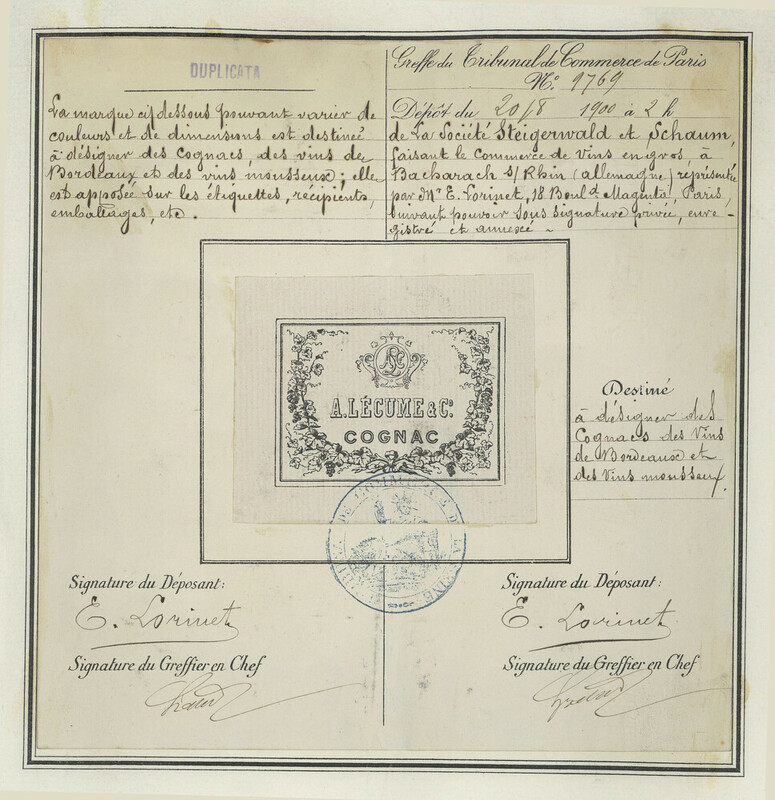 DUPLICATA
La marque ci dessous pouvant varier de
couleurs et de dimensions est destinée
à désigner des Cognacs, des vins de
Bordeaux et des vins mousseux; elle
est apposée sur les étiquettes, récipients,
emballages, etc.
Greffe du Tribunal de Commerce de Paris
N° 9769
Dépôt du 20/8 1900 à 2 h
de La Société Steigerwald et Schaum,
faisant le Commerce de Vins en gros, à
Bacharach s/Rhin (allemagne) représentée
par Mr E. Lorinet, 18 Bould Magenta, Paris,
suivant pouvoir sous signature privée, enre-
gistré et annexé ~
A. LÉCUME & Co.
COGNAC
Destiné
à désigner des
Cognacs des Vins
de Bordeaux et
des Vins mousseux.
DE COMMERCE DE LA SEINE
Signature du Déposant:
E. Lorinet
Signature du Greffier en Chef
Signature du Déposant:
E. Lorinet
Signature du Greffier en Chef